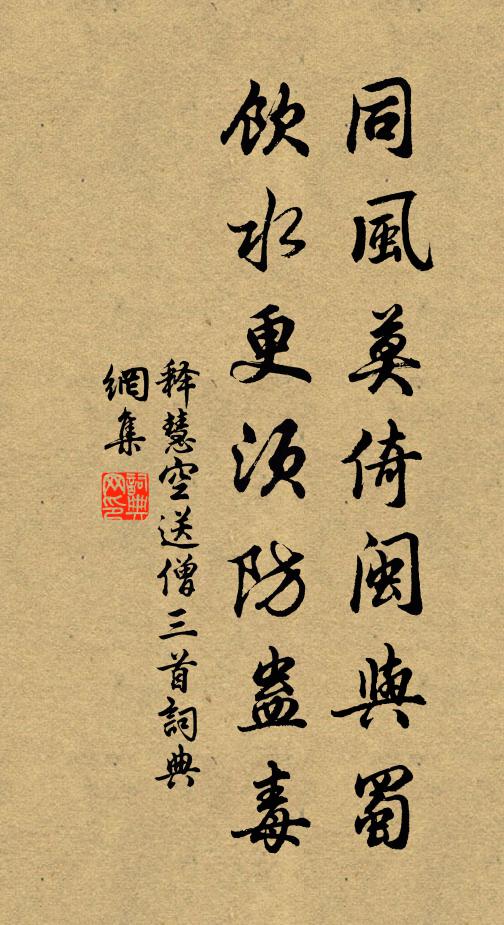 同風莫倚閩與蜀
飲水更須防蠱毒
釋慧空送僧三首詞典
網集
詞典
网印